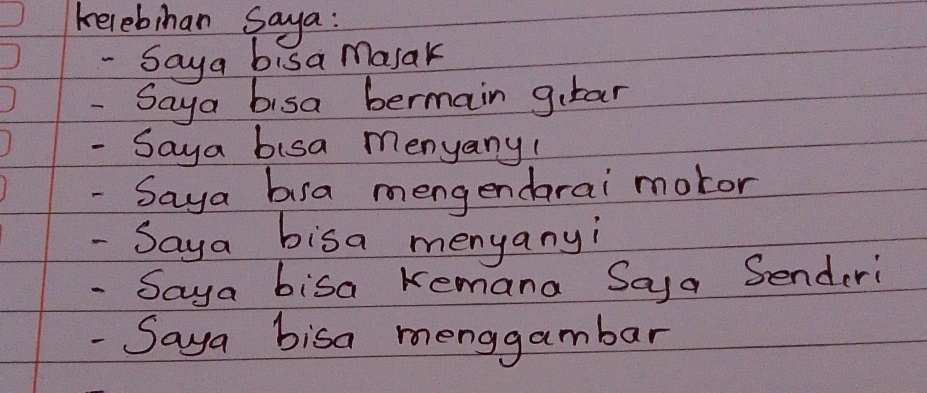 kelebihan Saya:
- Saya bisa Masak
- Saya bisa bermain gitar
- Saya bisa Menyanyi
- Saya bisa mengendarai motor
- Saya bisa menyanyi
- Saya bisa Kemana Saja Sendiri
- Saya bisa menggambar